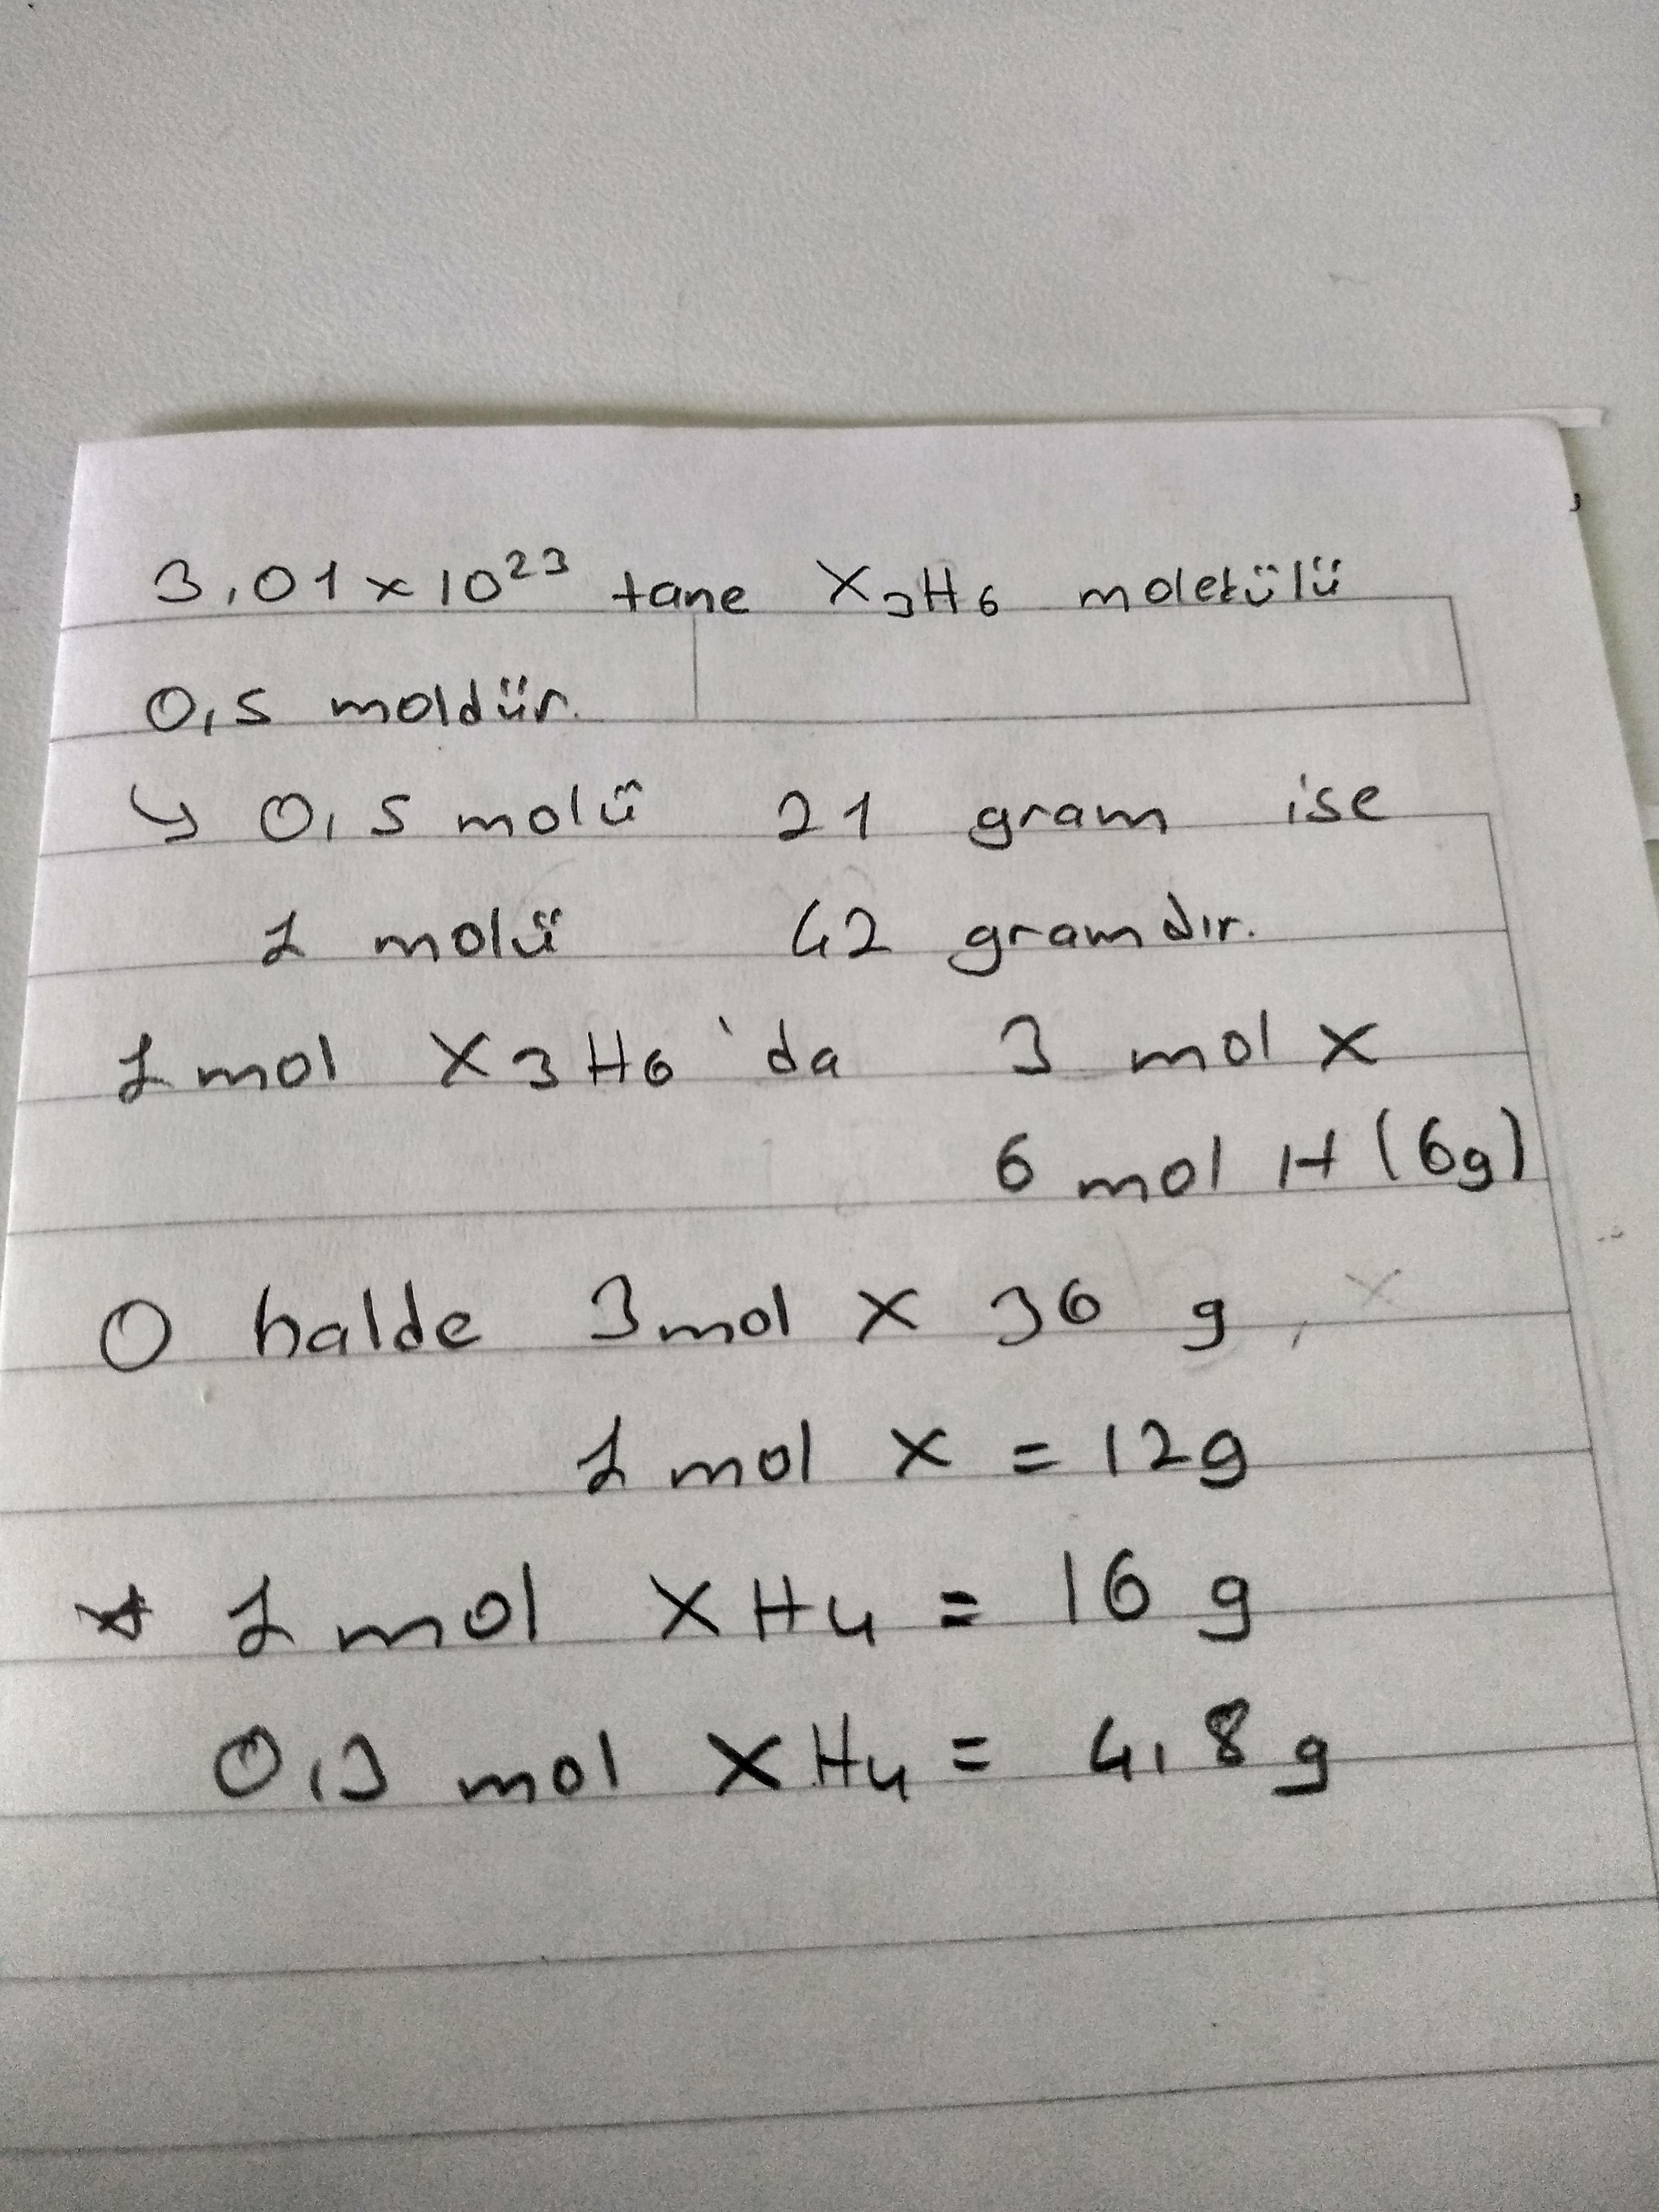 3,01 x 10²³ tane X₃H₆ molekülü
0,5 moldür.
↳ 0,5 molü 21 gram ise
1 molü 42 gramdır.
1 mol X₃H₆'da 3 mol X
6 mol H (6g)
O halde 3 mol X 36 g,
1 mol X = 12g
* 1 mol XH₄ = 16 g
0,3 mol XH₄ = 4,8 g